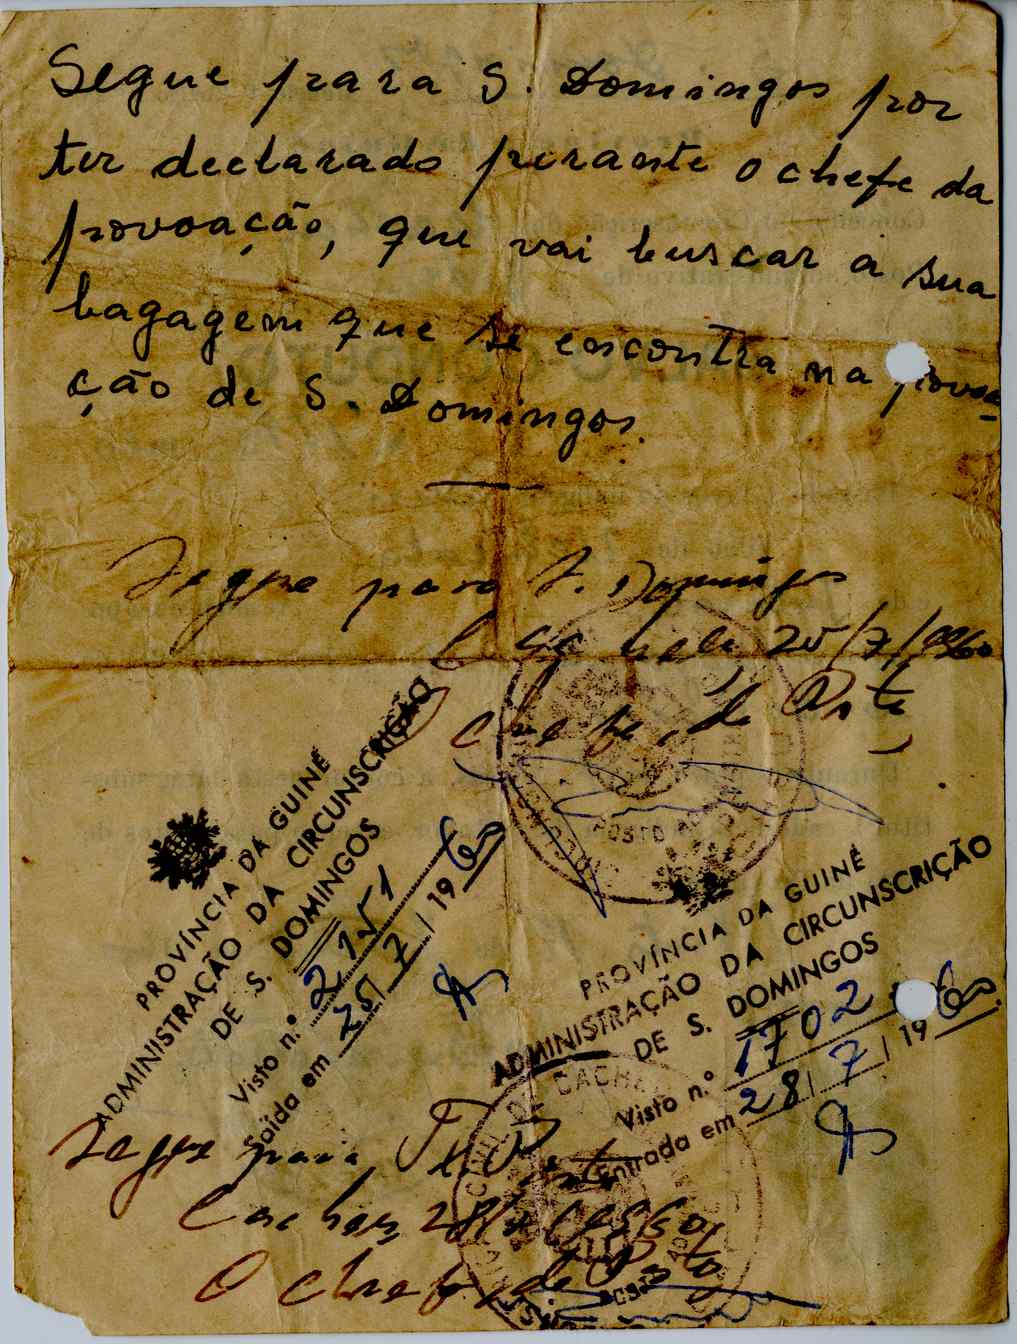 Segue para S. Domingos por
ter declarado perante o chefe da
provoação, que vai buscar a sua
bagagem que se encontra na povoa-
ção de S. Domingos.
Segue para S. Domingos
Cacheu 25/7/1960
O chefe de Posto
PROVÍNCIA DA GUINÉ
ADMINISTRAÇÃO DA CIRCUNSCRIÇÃO
DE S. DOMINGOS
Visto n.º 2151
Saída em 25/7/1960
POSTO
PROVÍNCIA DA GUINÉ
ADMINISTRAÇÃO DA CIRCUNSCRIÇÃO
DE S. DOMINGOS
Visto n.º 1702
Entrada em 28/7/1960
CACHEU
Segue para
Cacheu, 28/7/1960
O chefe de Posto